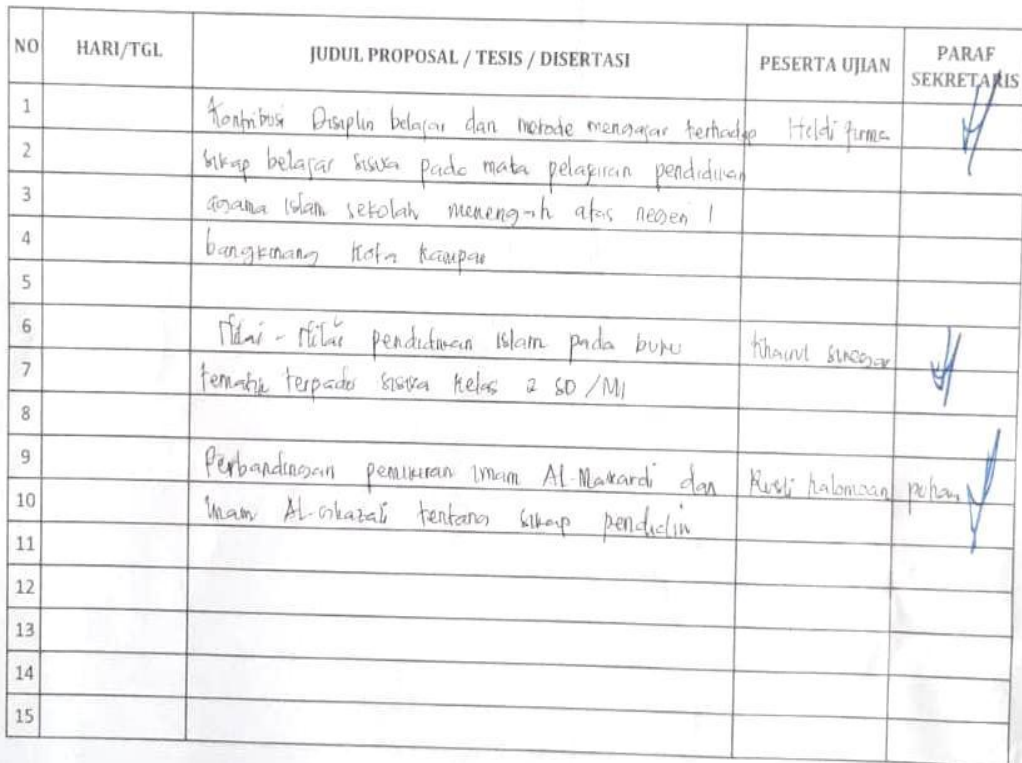 NO HARI/TGL JUDUL PROPOSAL / TESIS / DISERTASI PESERTA UJIAN PARAF SEKRETARIS
1 Kontribusi Disiplin belajar dan metode mengajar terhadap Heldi firma
2 sikap belajar siswa pada mata pelajaran pendidikan
3 agama Islam sekolah menengah atas negeri 1
4 bangkinang Kota Kampar
5
6 Nilai - Nilai pendidikan Islam pada buku Khairul siregar
7 tematik terpadu siswa kelas 2 SD/MI
8
9 Perbandingan pemikiran Imam Al-Mawardi dan Rusli halomoan pohan
10 Imam Al-Ghazali tentang sikap pendidik
11
12
13
14
15